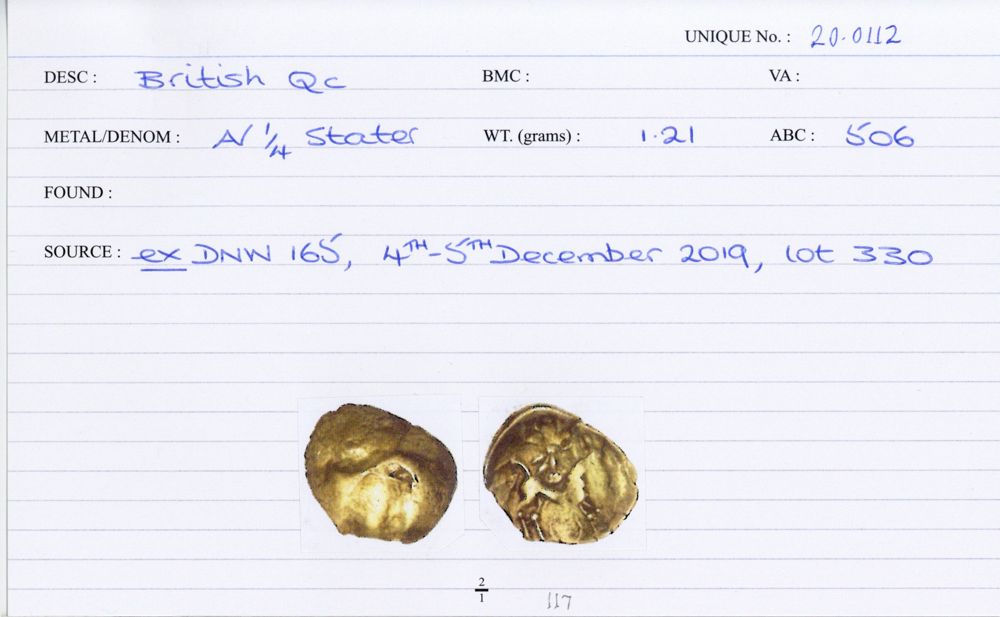 UNIQUE No. : 20.0112
DESC : British Qc BMC : VA :
METAL/DENOM : A/ 1/4 Stater WT. (grams) : 1.21 ABC : 506
FOUND :
SOURCE : ex DNW 165, 4TH-5TH December 2019, lot 330
2
1
117